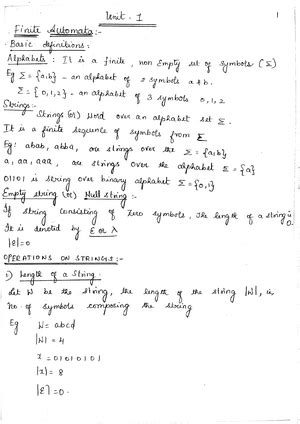 Unit - 1
1
Finite Automata:-
Basic definitions:
Alphabets : It is a finite, non Empty set of symbols (Σ)
Eg Σ = {a,b} - an alphabet of 2 symbols a & b.
Σ = {0,1,2} - an alphabet of 3 symbols 0,1,2
Strings:- Strings (or) Word over an alphabet set Σ.
It is a finite sequence of symbols from Σ
Eg: abab, abba, are strings over the Σ = {a,b}
a, aa, aaa, are strings over the alphabet Σ = {a}
01101 is string over binary alphabet Σ = {0,1}
Empty string (or) Null string :-
If string consisting of zero symbols, the length of a string is 0.
It is denoted by ε or λ
|ε| = 0
OPERATIONS ON STRINGS:-
i) Length of a string.
Let W be the string, the length of the string |W|, is
no. of symbols composing the string
Eg W = abcd
|W| = 4
x = 01010101
|x| = 8
|ε| = 0.